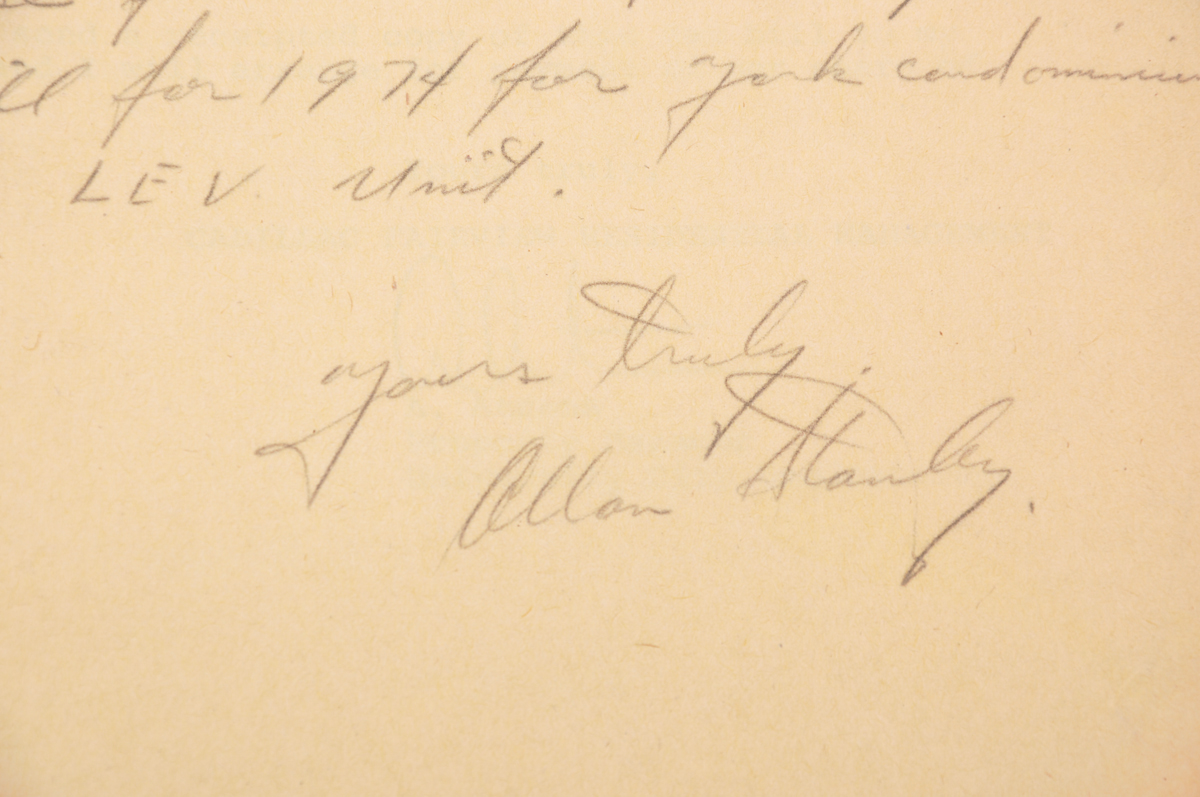 for 1974 for york condominiu
LEV Unit.
yours truly,
Allan Stanley.